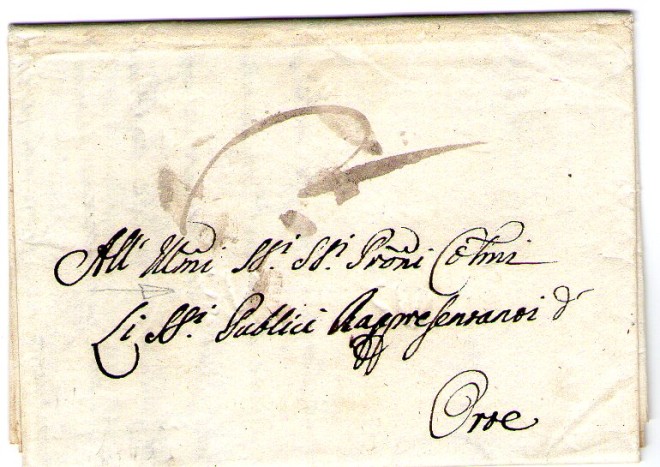 All' Illm̃i SS.i SS.i Prõni Cõlmi
Li SS.i Publici Rappresentanti d'
Orte